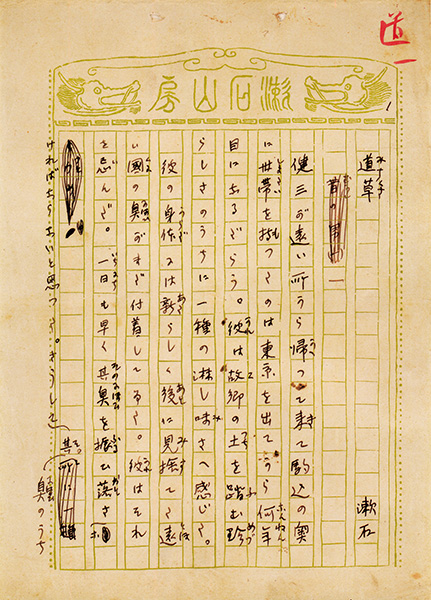 道一
漱石山房
1
道草 漱石
一
健三が遠い所から帰つて来て駒込の奥
に世帯を持つたのは東京を出てから何年
目になるだらう。彼は故郷の土を踏む珍
らしさのうちに一種の淋し味さへ感じた。
彼の身体には新らしく後に見捨てた遠
い國の臭がまだ付着してゐた。彼はそれ
を忌んだ。一日も早く其臭を振ひ落さな
ければならないと思つた。さうして
其
臭のうち